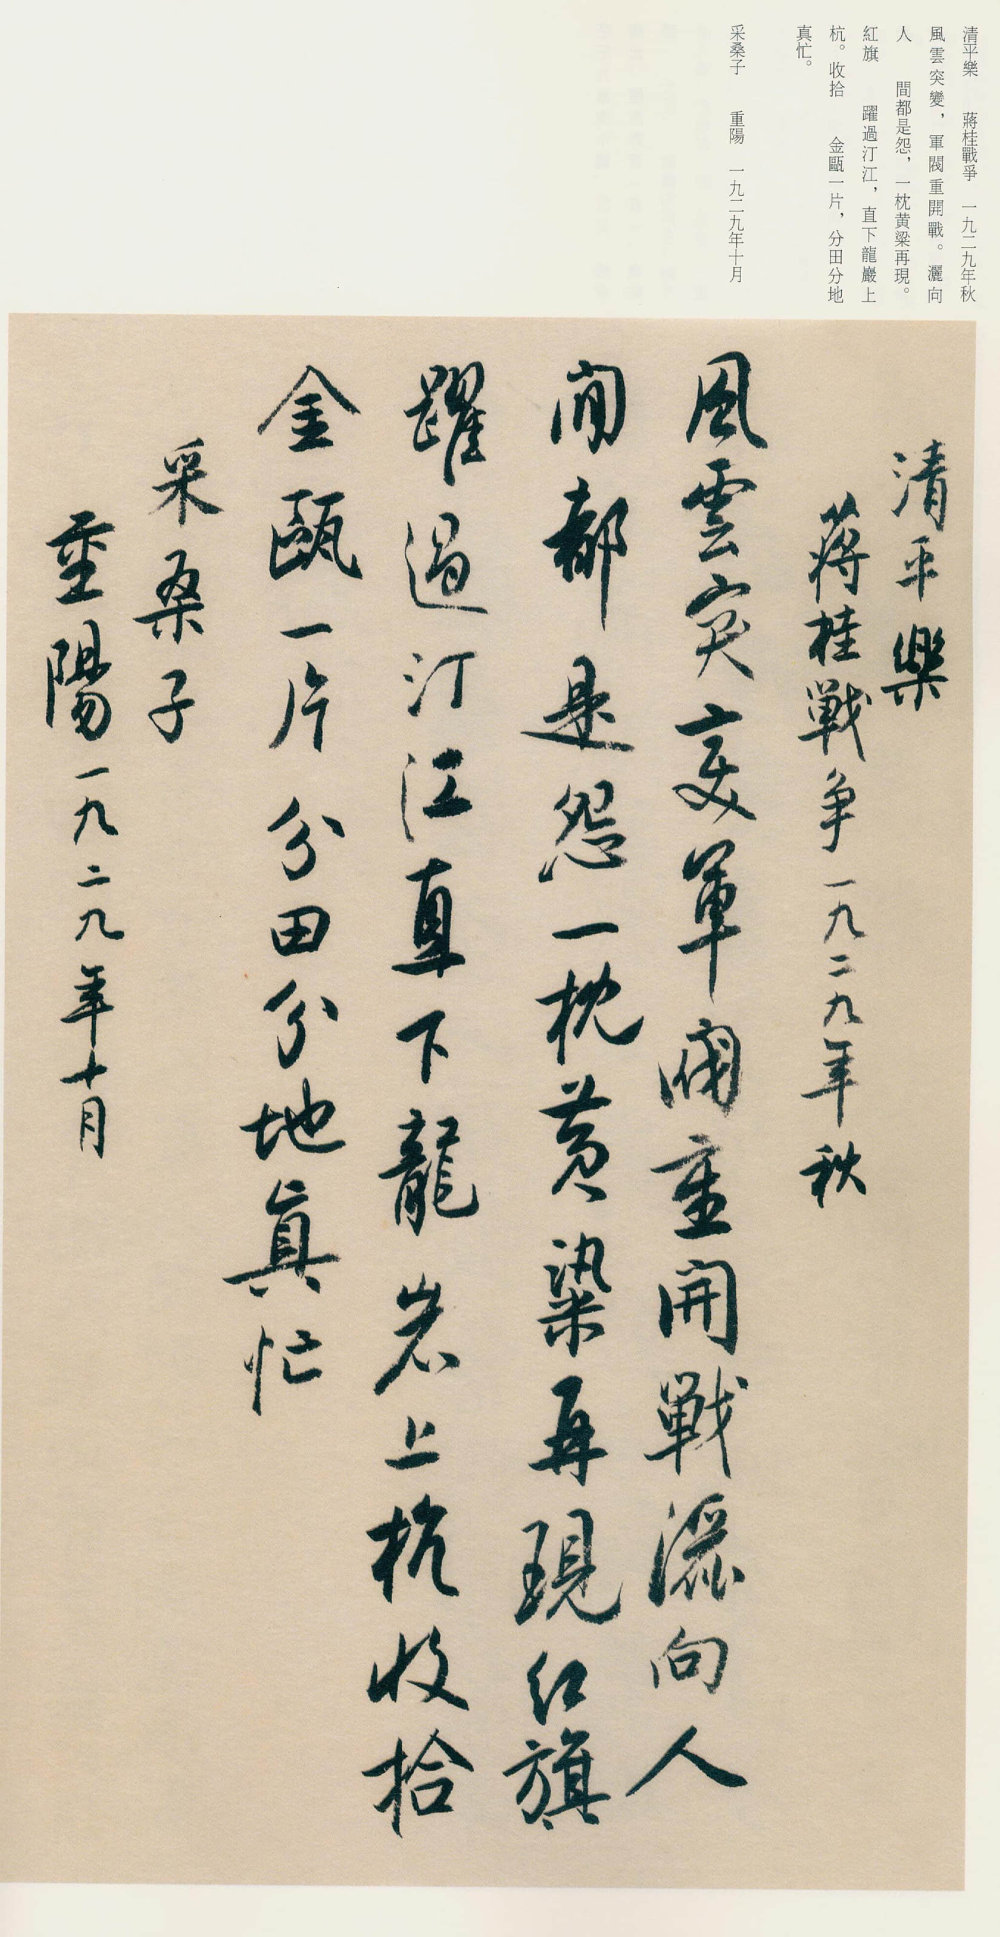 清平樂　　蔣桂戰爭　一九二九年秋
風雲突變，軍閥重開戰。灑向
人　　間都是怨，一枕黄粱再現。
紅旗　　躍過汀江，直下龍巖上
杭。收拾　　金甌一片，分田分地
真忙。
采桑子　　重陽　一九二九年十月
清平樂
蒋桂戰争一九二九年秋
風雲突变軍閥重開戰灑向人
间都是怨一枕黄粱再現红旗
躍過汀江直下龍岩上杭收拾
金甌一片分田分地真忙
采桑子
重陽一九二九年十月